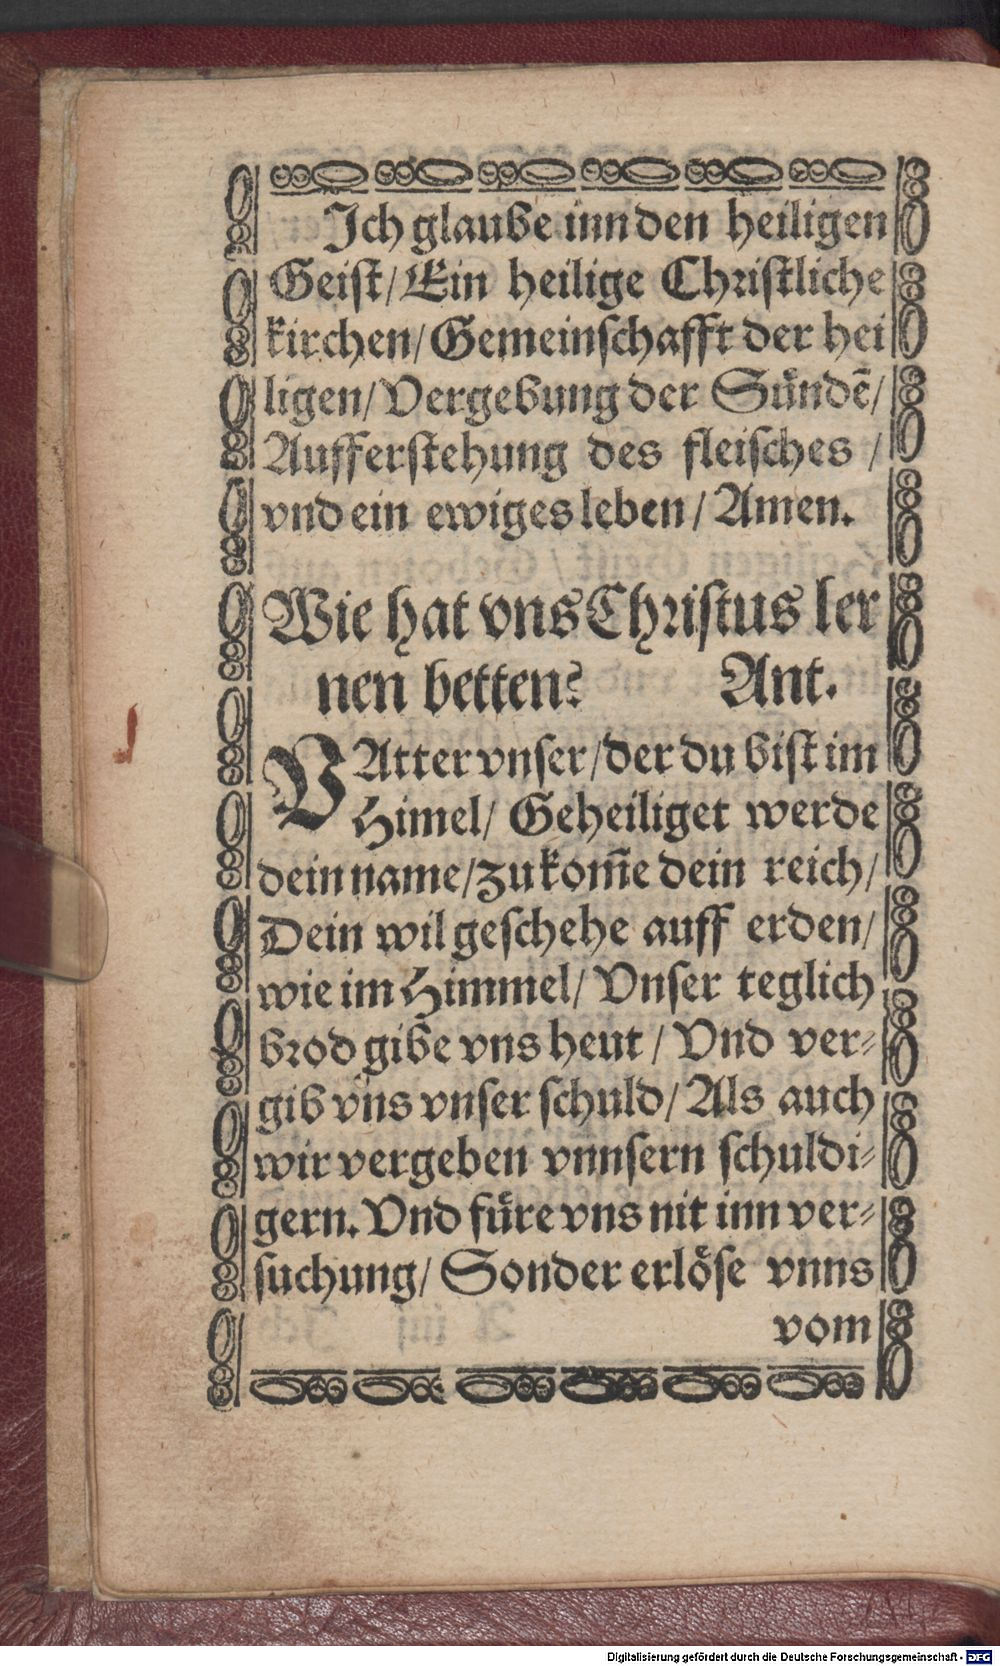 Ich glaube inn den heiligen
Geist/ Ein heilige Christliche
kirchen/ Gemeinschafft der hei
ligen/ Vergebung der Sündē/
Aufferstehung des fleisches /
vnd ein ewiges leben/ Amen.
Wie hat vns Christus ler
nen betten? Ant.
VAtter vnser/ der du bist im
Himel/ Geheiliget werde
dein name/ zukom̃e dein reich/
Dein wil geschehe auff erden/
wie im Himmel/ Vnser teglich
brod gibe vns heut / Vnd ver-
gib vns vnser schuld/ Als auch
wir vergeben vnnsern schuldi-
gern. Vnd füre vns nit inn ver-
suchung/ Sonder erlöse vnns
vom
Digitalisierung gefördert durch die Deutsche Forschungsgemeinschaft - DFG